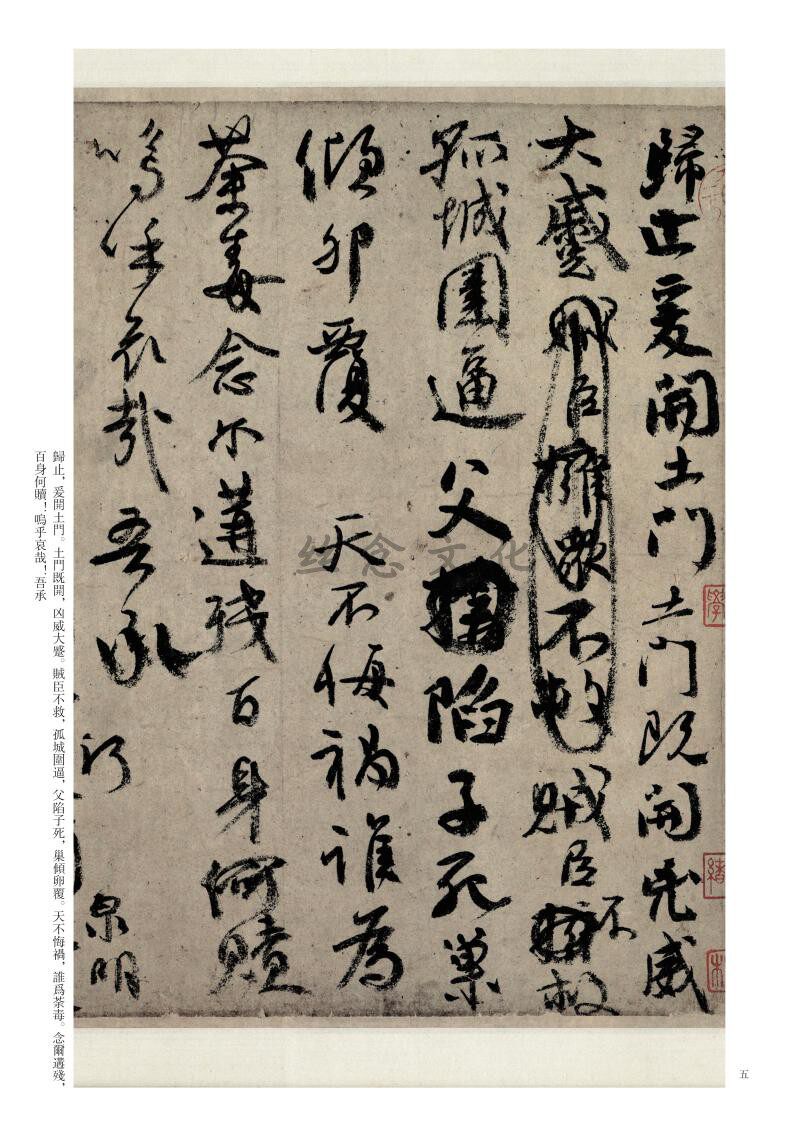 歸止爰開土門土門既開凶威
大蹙賊臣擁眾不救賊臣不救
孤城圍逼父陷子死巢
傾卵覆天不悔禍誰為
荼毒念爾遘殘百身何贖
嗚呼哀哉吾承
泉明
約念文化
歸止，爰開土門。土門既開，凶威大蹙。賊臣不救，孤城圍逼，父陷子死，巢傾卵覆。天不悔禍，誰爲荼毒。念爾遘殘，
百身何贖！嗚乎哀哉！吾承
五